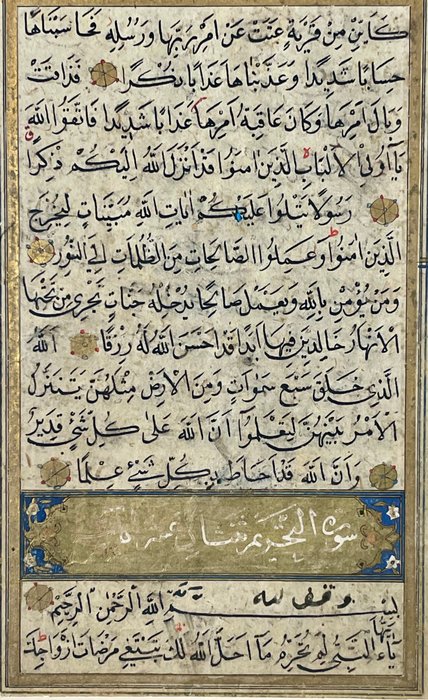 كاين من قرية عتت عن امر ربها ورسله فحاسبناها
حسابا شديدا وعذبناها عذابا نكرا فذاقت
وبال امرها وكان عاقبة امرها عذابا شديدا فاتقوا الله
يا اولى الالباب الذين امنوا قد انزل الله اليكم ذكرا
رسولا يتلوا عليكم ايات الله مبينات ليخرج
الذين امنوا وعملوا الصالحات من الظلمات الى النور
ومن يؤمن بالله ويعمل صالحا يدخله جنات تجرى من تحتها
الانهار خالدين فيها ابدا قد احسن الله له رزقا الله
الذى خلق سبع سموات ومن الارض مثلهن يتنزل
الامر بينهن لتعلموا ان الله على كل شئ قدير
وان الله قد احاط بكل شئ علما
سورة التحريم
وقف لله
بسم الله الرحمن الرحيم
يا ايها النبى لم تحرم ما احل الله لك تبتغى مرضات ازواجك